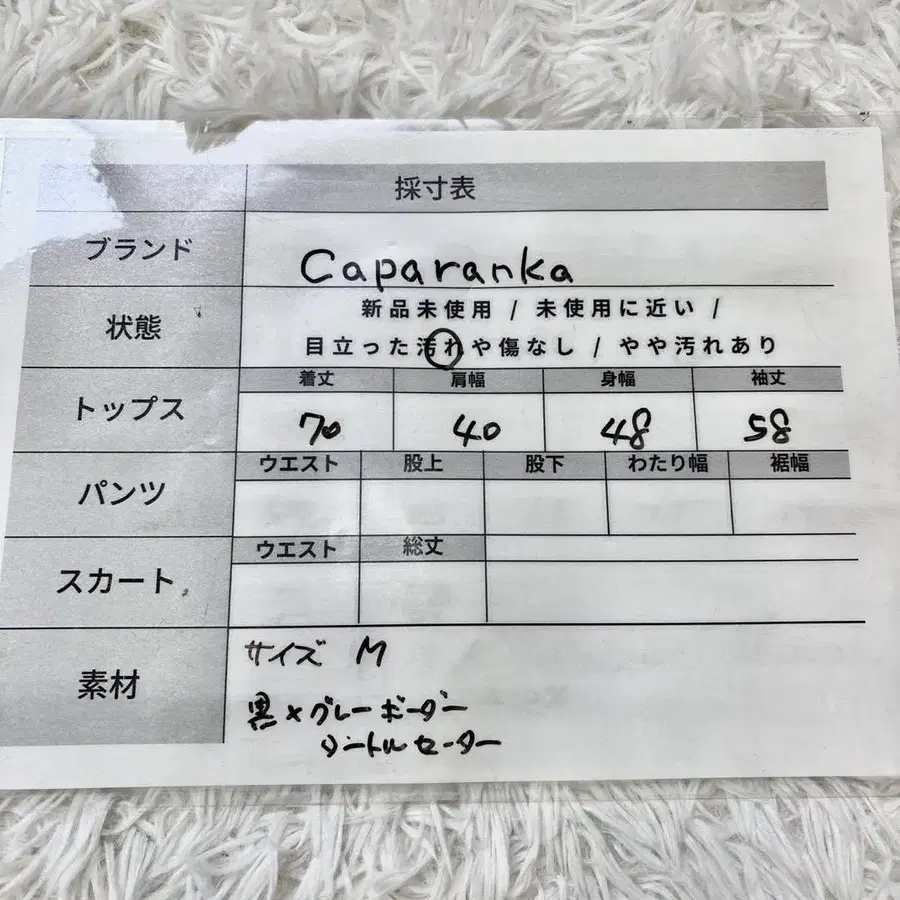 採寸表
ブランド
Caparanka
状態
新品未使用 / 未使用に近い /
目立った汚れや傷なし / やや汚れあり
トップス
着丈 肩幅 身幅 袖丈
70 40 48 58
パンツ
ウエスト 股上 股下 わたり幅 裾幅
スカート
ウエスト 総丈
素材
サイズ M
黒×グレーボーダー
タートルセーター